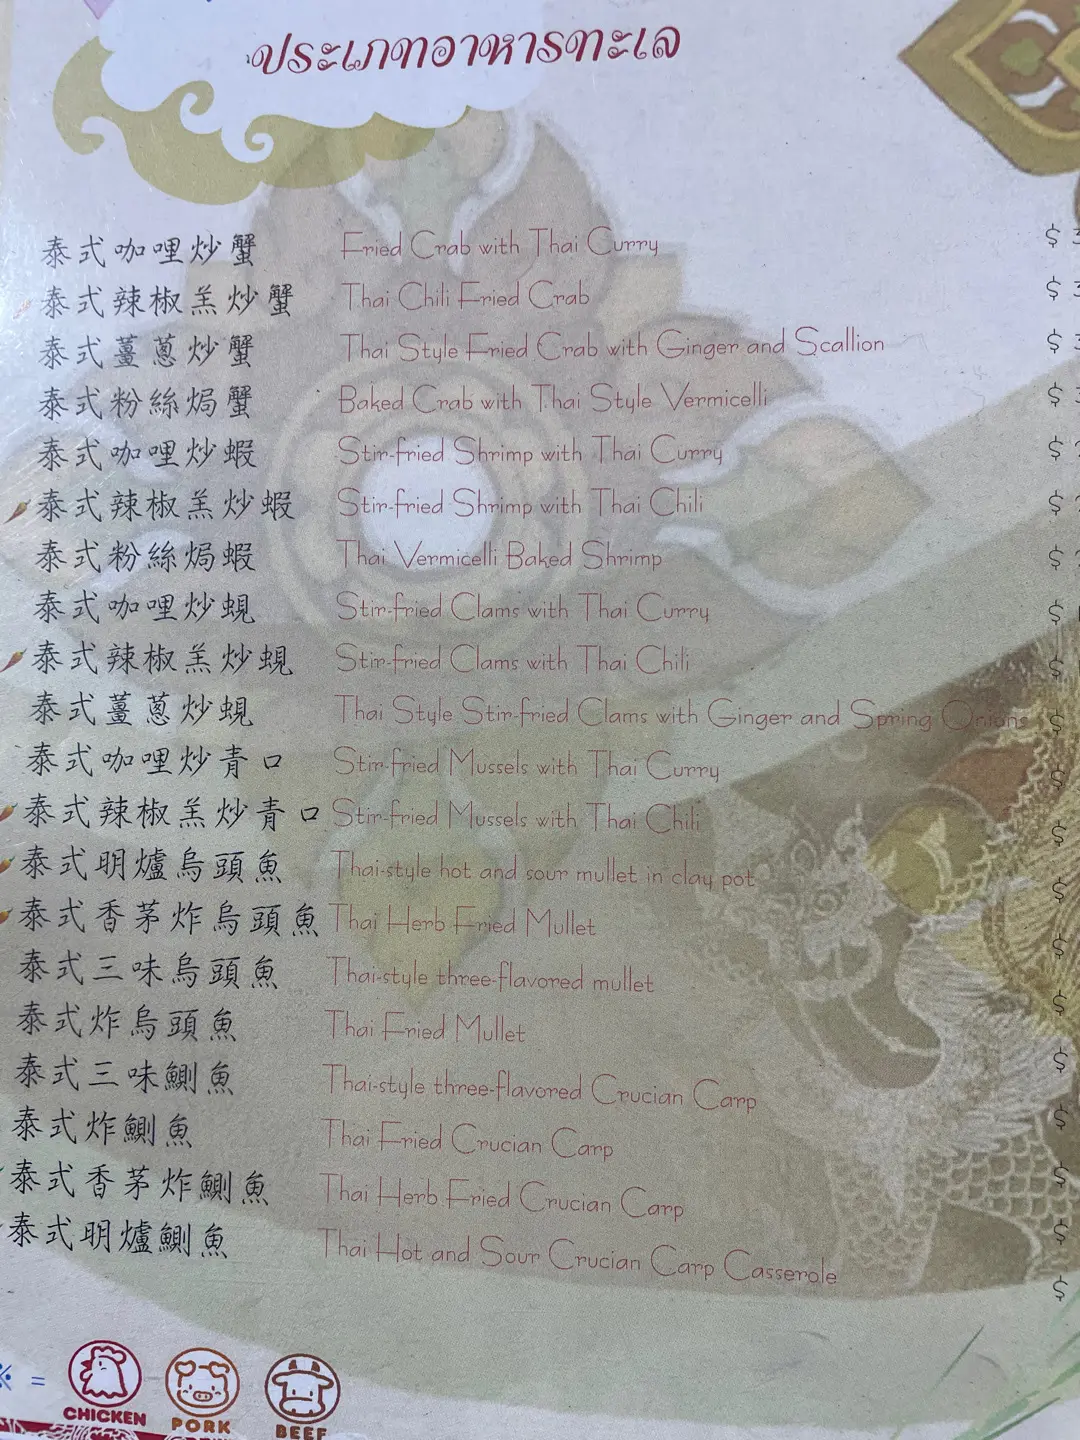 ประเภทอาหารทะเล
泰式咖哩炒蟹 Fried Crab with Thai Curry $ 3
泰式辣椒羔炒蟹 Thai Chili Fried Crab $ 3
泰式薑蔥炒蟹 Thai Style Fried Crab with Ginger and Scallion $ 3
泰式粉絲焗蟹 Baked Crab with Thai Style Vermicelli $ 3
泰式咖哩炒蝦 Stir-fried Shrimp with Thai Curry $
泰式辣椒羔炒蝦 Stir-fried Shrimp with Thai Chili $
泰式粉絲焗蝦 Thai Vermicelli Baked Shrimp $
泰式咖哩炒蜆 Stir-fried Clams with Thai Curry $
泰式辣椒羔炒蜆 Stir-fried Clams with Thai Chili $
泰式薑蔥炒蜆 Thai Style Stir-fried Clams with Ginger and Spring Onions $
泰式咖哩炒青口 Stir-fried Mussels with Thai Curry $
泰式辣椒羔炒青口 Stir-fried Mussels with Thai Chili $
泰式明爐烏頭魚 Thai-style hot and sour mullet in clay pot $
泰式香茅炸烏頭魚 Thai Herb Fried Mullet $
泰式三味烏頭魚 Thai-style three-flavored mullet $
泰式炸烏頭魚 Thai Fried Mullet $
泰式三味鰂魚 Thai-style three-flavored Crucian Carp $
泰式炸鰂魚 Thai Fried Crucian Carp $
泰式香茅炸鰂魚 Thai Herb Fried Crucian Carp $
泰式明爐鰂魚 Thai Hot and Sour Crucian Carp Casserole $
※ = CHICKEN PORK BEEF